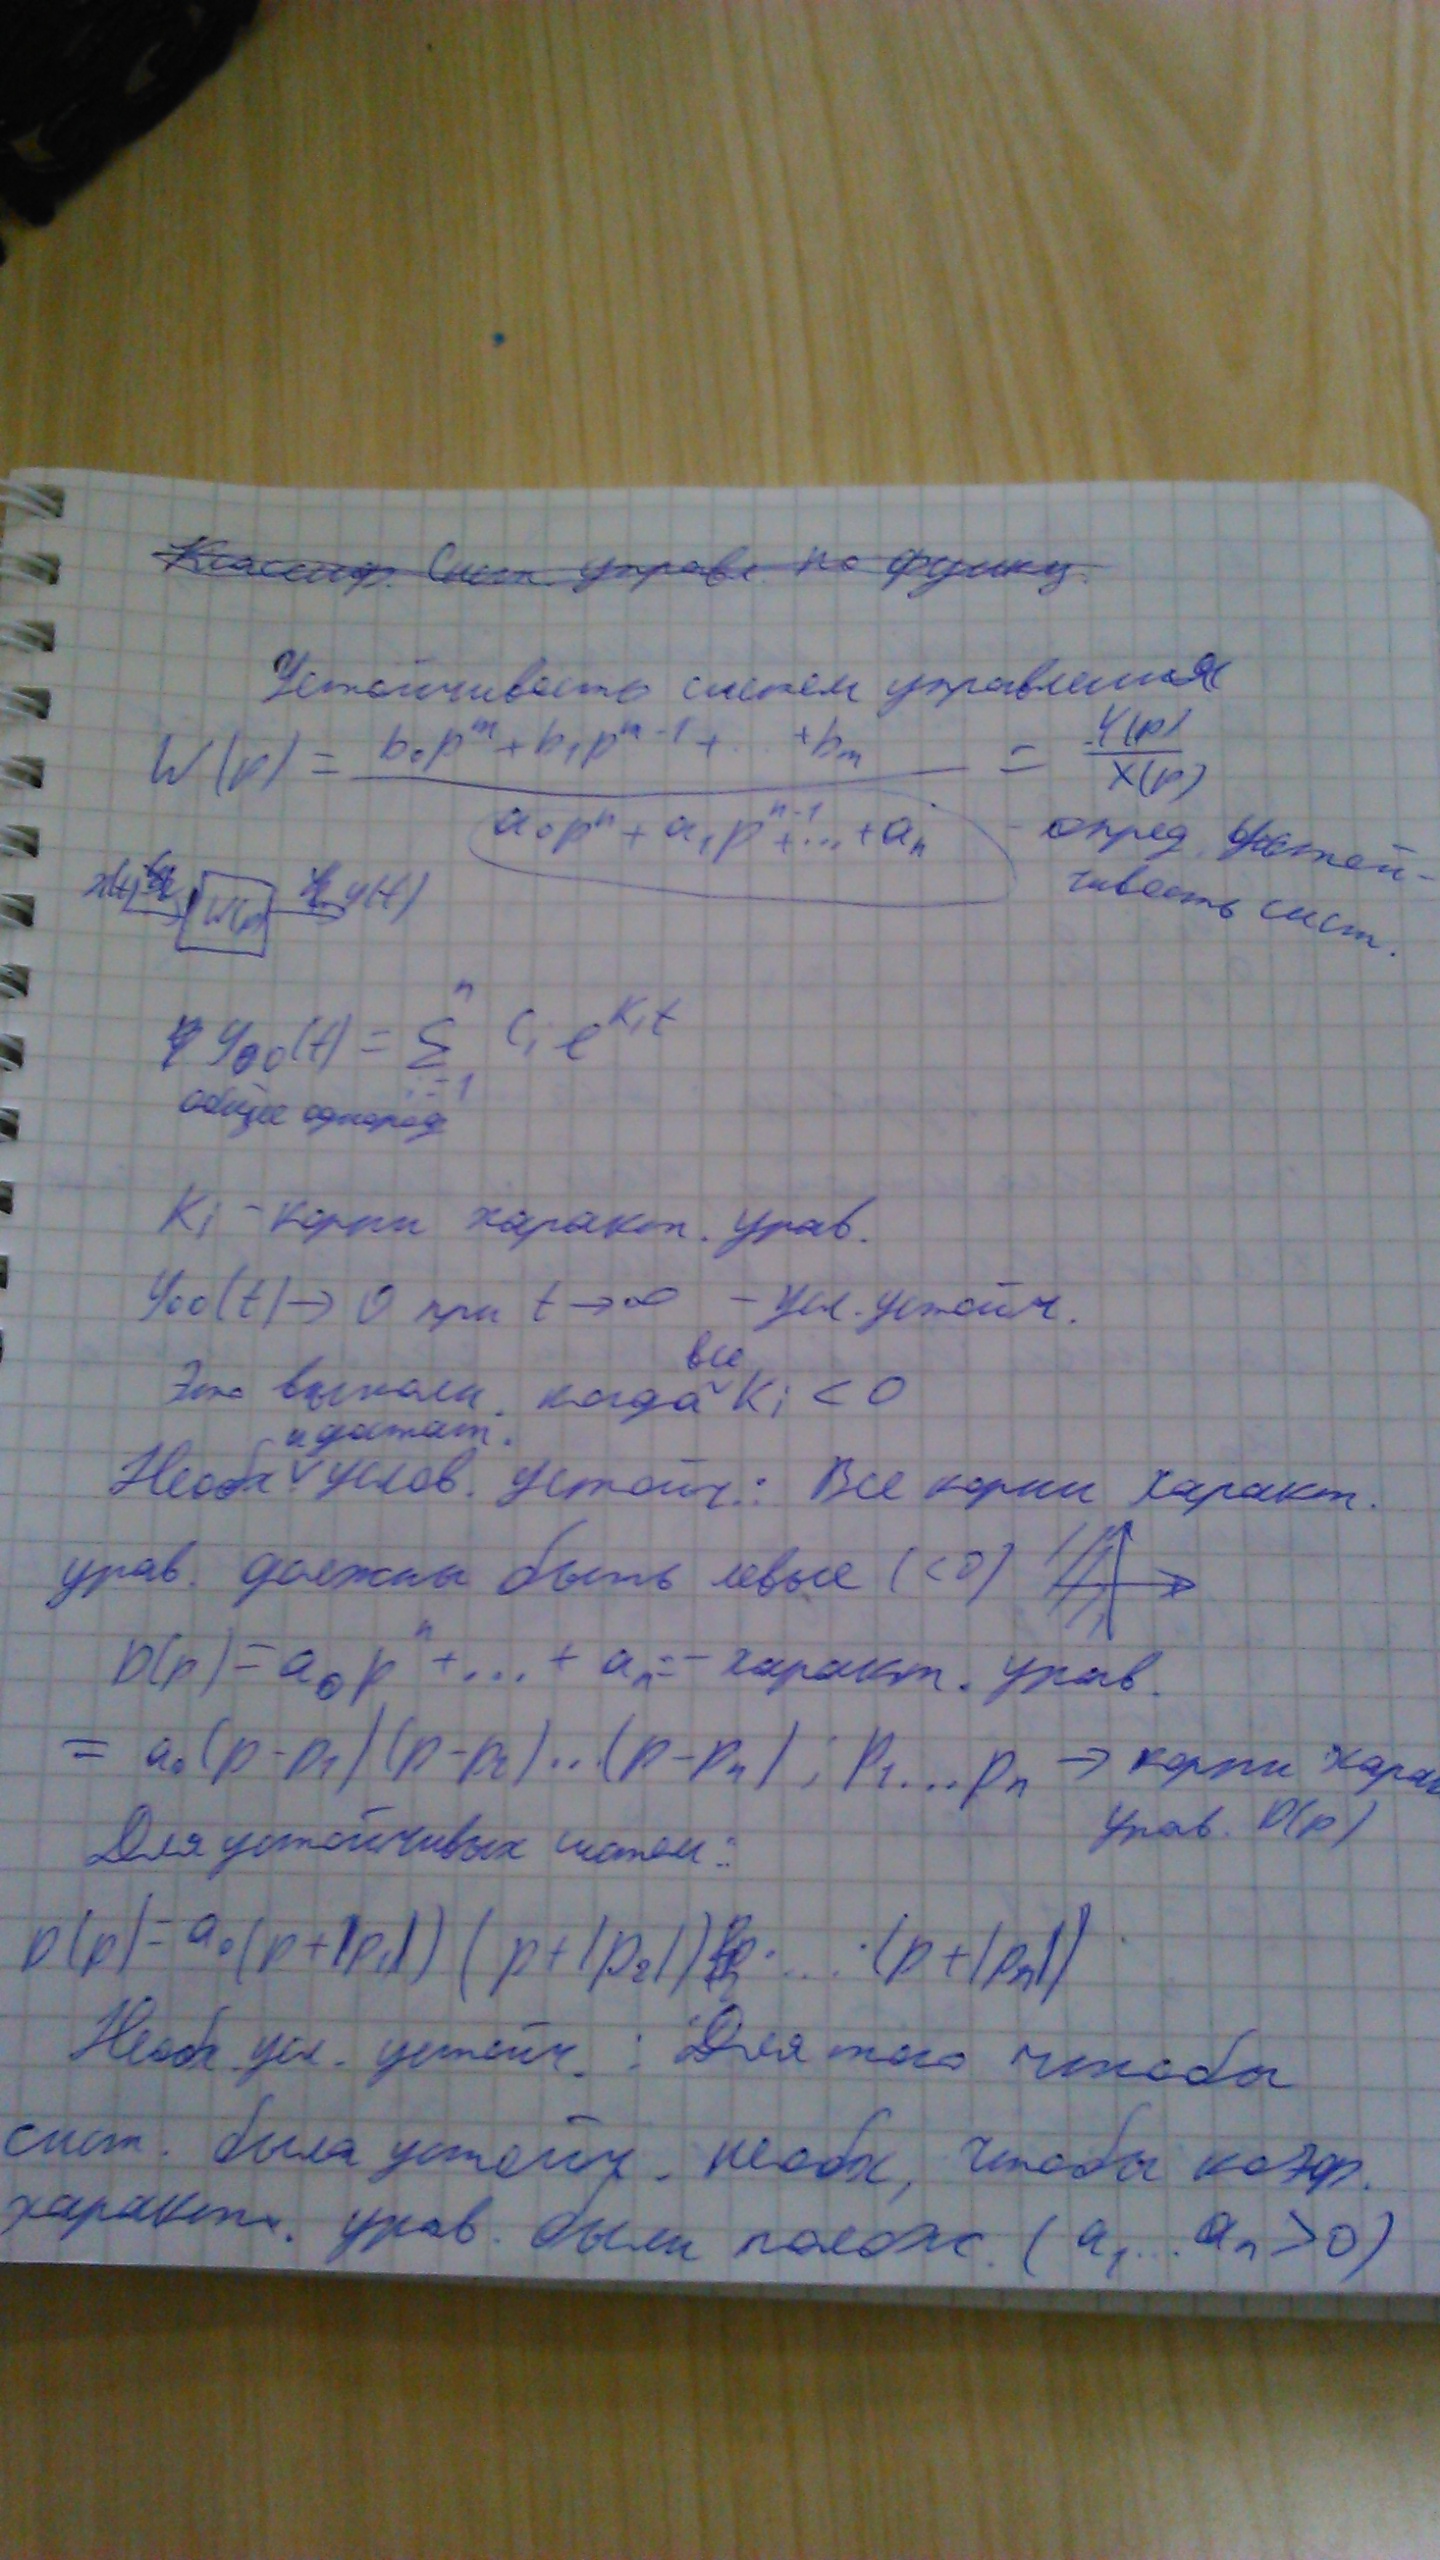 Классиф. Сист. управл. по функц.
Устойчивость систем управления
W(p) = (b₀pᵐ + b₁pᵐ⁻¹ + ... + bₘ) / (a₀pⁿ + a₁pⁿ⁻¹ + ... + aₙ) = Y(p) / X(p)
- опред. устой-
чивость сист.
x(t) W(p) y(t)
y₀₀(t) = Σ Cᵢ e^(Kᵢt)
n
i=1
общее однород
Kᵢ - корни характ. урав.
y₀₀(t) → 0 при t → ∞ - усл. устойч.
Это выполн. когда все Kᵢ < 0
Необх. и достат. услов. устойч.: Все корни характ.
урав. должны быть левые (<0)
D(p) = a₀pⁿ + ... + aₙ = - характ. урав.
= a₀(p-p₁)(p-p₂)...(p-pₙ) ; p₁...pₙ → корни харак
урав. D(p)
Для устойчивых систем:
D(p) = a₀(p+|p₁|)(p+|p₂|)·...·(p+|pₙ|)
Необх. усл. устойч. : Для того чтобы
сист. была устойч. необх, чтобы коэф.
характ. урав. были полож. (a₁...aₙ>0)